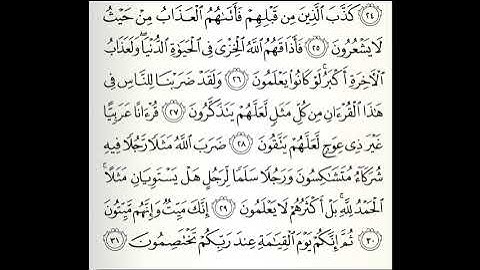 ٢٤ كَذَّبَ الَّذِينَ مِن قَبْلِهِمْ فَأَتَىٰهُمُ الْعَذَابُ مِنْ حَيْثُ
لَا يَشْعُرُونَ ٢٥ فَأَذَاقَهُمُ اللَّهُ الْخِزْىَ فِى الْحَيَوٰةِ الدُّنْيَا ۖ وَلَعَذَابُ
الْآخِرَةِ أَكْبَرُ ۚ لَوْ كَانُوا يَعْلَمُونَ ٢٦ وَلَقَدْ ضَرَبْنَا لِلنَّاسِ فِى
هَٰذَا الْقُرْءَانِ مِن كُلِّ مَثَلٍ لَّعَلَّهُمْ يَتَذَكَّرُونَ ٢٧ قُرْءَانًا عَرَبِيًّا
غَيْرَ ذِى عِوَجٍ لَّعَلَّهُمْ يَتَّقُونَ ٢٨ ضَرَبَ اللَّهُ مَثَلًا رَّجُلًا فِيهِ
شُرَكَاءُ مُتَشَٰكِسُونَ وَرَجُلًا سَلَمًا لِّرَجُلٍ هَلْ يَسْتَوِيَانِ مَثَلًا ۚ
الْحَمْدُ لِلَّهِ ۚ بَلْ أَكْثَرُهُمْ لَا يَعْلَمُونَ ٢٩ إِنَّكَ مَيِّتٌ وَإِنَّهُم مَّيِّتُونَ
٣٠ ثُمَّ إِنَّكُمْ يَوْمَ الْقِيَٰمَةِ عِندَ رَبِّكُمْ تَخْتَصِمُونَ ٣١